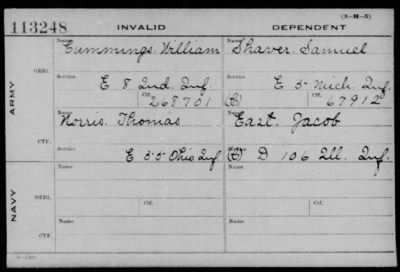 (3-H-5)
113248 INVALID DEPENDENT
Name Name
Cummings. William Shaver. Samuel
ORIG.
Service Service
E 8 Ind. Inf. E 5 Mich. Inf.
Ctf. Ctf.
268701 67912
ARMY
Name Name
Norris. Thomas East. Jacob
CTF.
Service
E 55 Ohio Inf. D 106 Ill. Inf.
Name Name
ORIG.
Service Service
Ctf. Ctf.
NAVY
Name Name
CTF.
Service Service